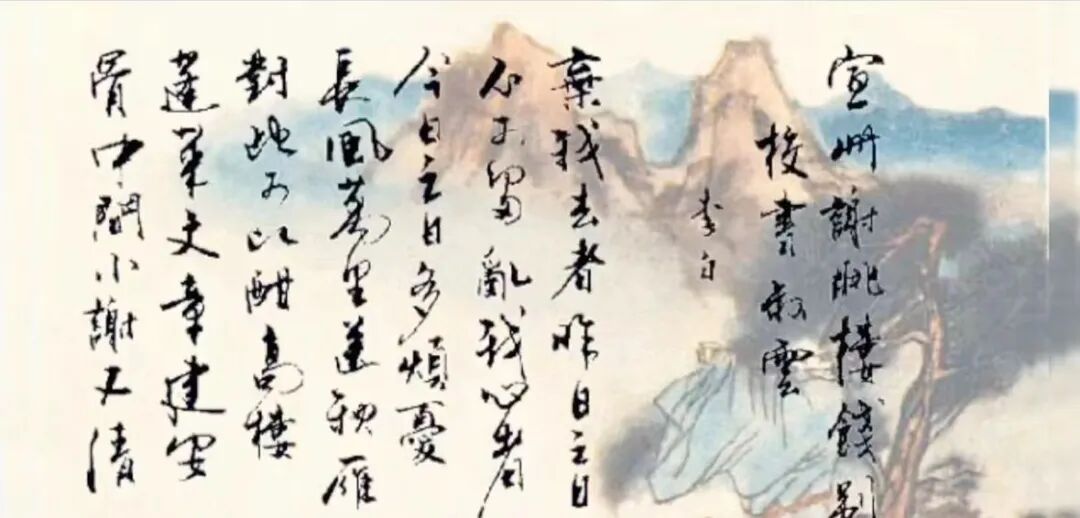 宣州謝朓樓餞別
校書叔雲
李白
棄我去者昨日之日
不可留亂我心者
今日之日多煩憂
長風萬里送秋雁
對此可以酣高樓
蓬萊文章建安
骨中間小謝又清